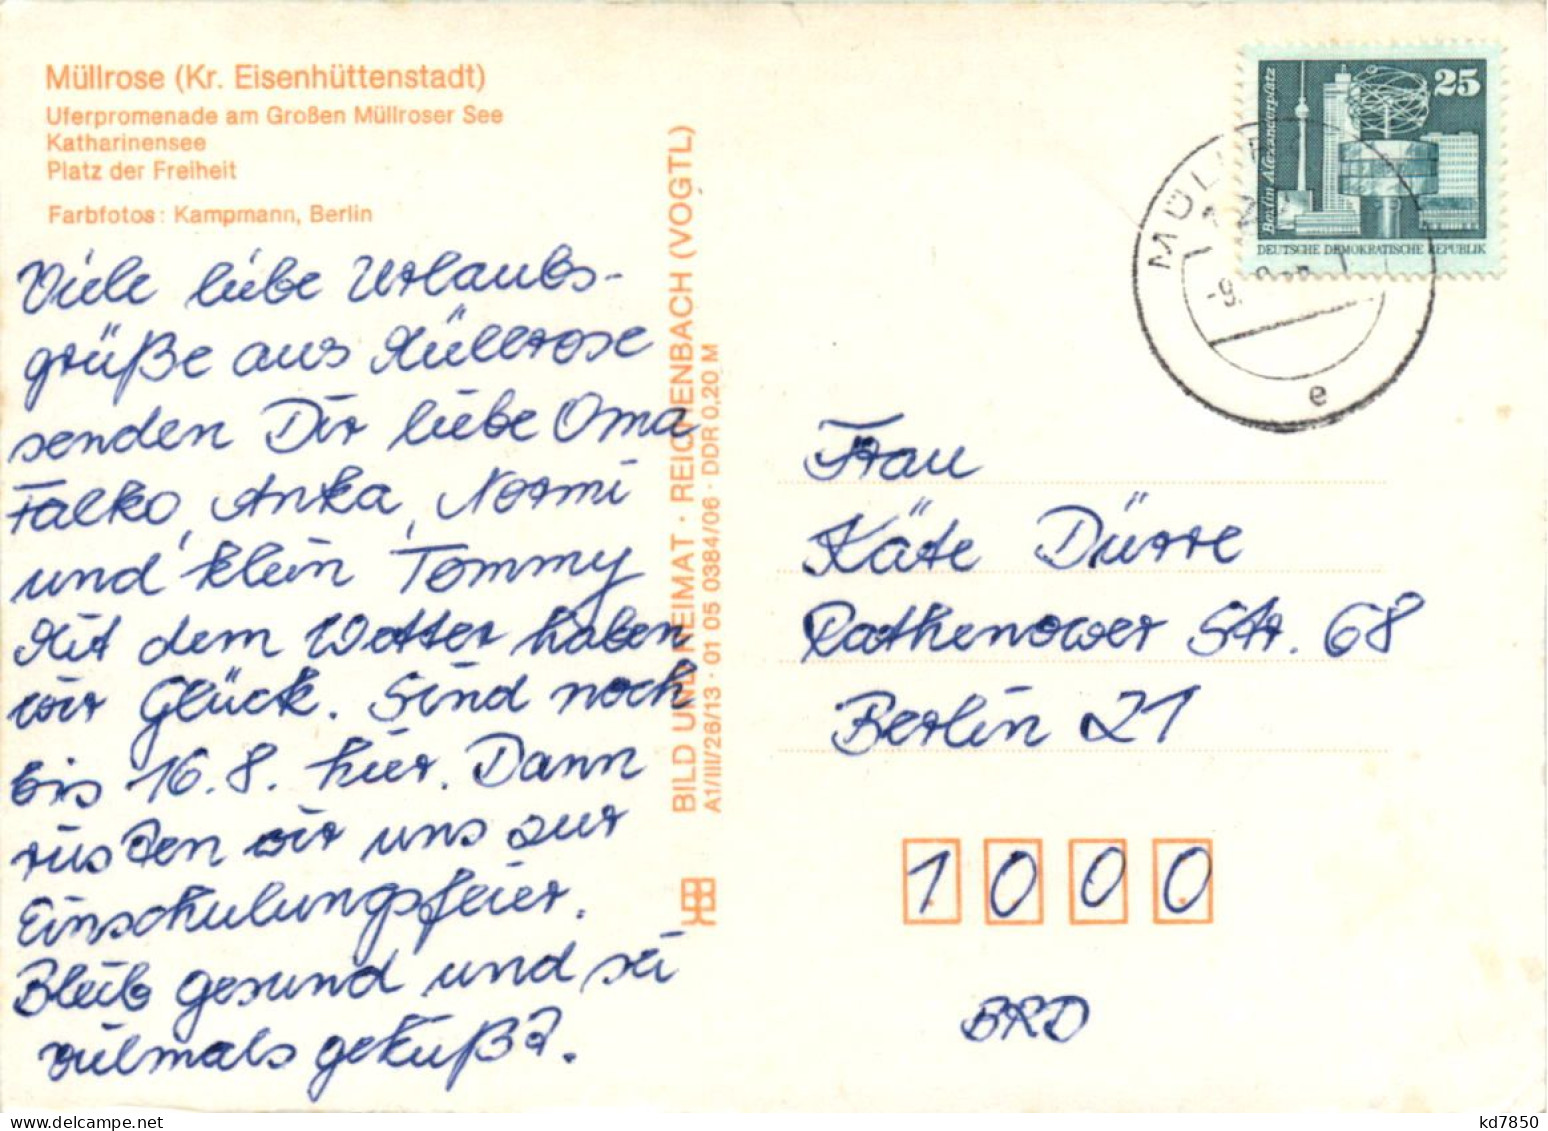 Müllrose (Kr. Eisenhüttenstadt)
Uferpromenade am Großen Müllroser See
Katharinensee
Platz der Freiheit
Farbfotos: Kampmann, Berlin
Viele liebe Urlaubs-
grüße aus Müllrose
senden Dir liebe Oma
Falko, Anka, Normi
und klein Tommy
Mit dem Wetter haben
wir Glück. Sind noch
bis 16.8. hier. Dann
rüsten wir uns zur
Einschulungsfeier.
Bleib gesund und sei
vielmals geküßt.
BILD UND HEIMAT · REICHENBACH (VOGTL)
A1/III/26/13 · 01 05 0384/06 · DDR 0,20 M
25
Berlin Alexanderplatz
DEUTSCHE DEMOKRATISCHE REPUBLIK
e
Frau
Käte Dürre
Rathenower Str. 68
Berlin 21
1000
BRD
kd7850